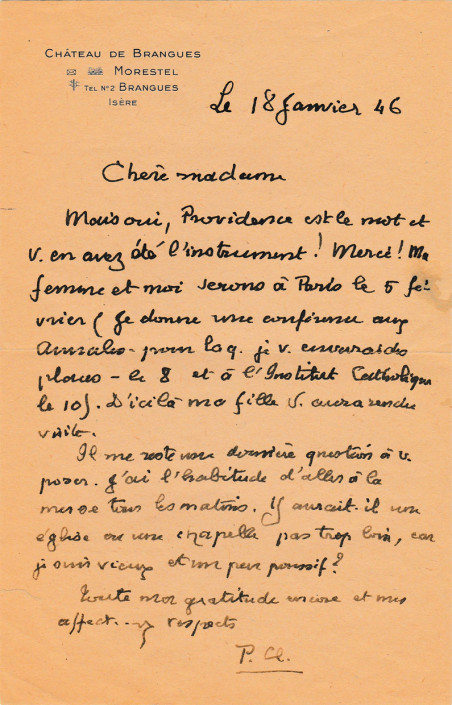 CHÂTEAU DE BRANGUES
MORESTEL
TEL Nº2 BRANGUES
ISÈRE
Le 18 Janvier 46
Chère madame
Mais oui, Providence est le mot et
v. en avez été l'instrument! Merci! Ma
femme et moi serons à Paris le 5 fé
vrier (je donne une conférence aux
Annales - pour laq. je v. enverrai des
places - le 8 et à l'Institut Catholique
le 10). D'ici là ma fille v. aura rendu
visite.
Il me reste une dernière question à v.
poser. J'ai l'habitude d'aller à la
messe tous les matins. Y aurait-il une
église ou une chapelle pas trop loin, car
je suis vieux et un peu poussif?
Toute ma gratitude encore et mes
affect...x respects
P. Cl.